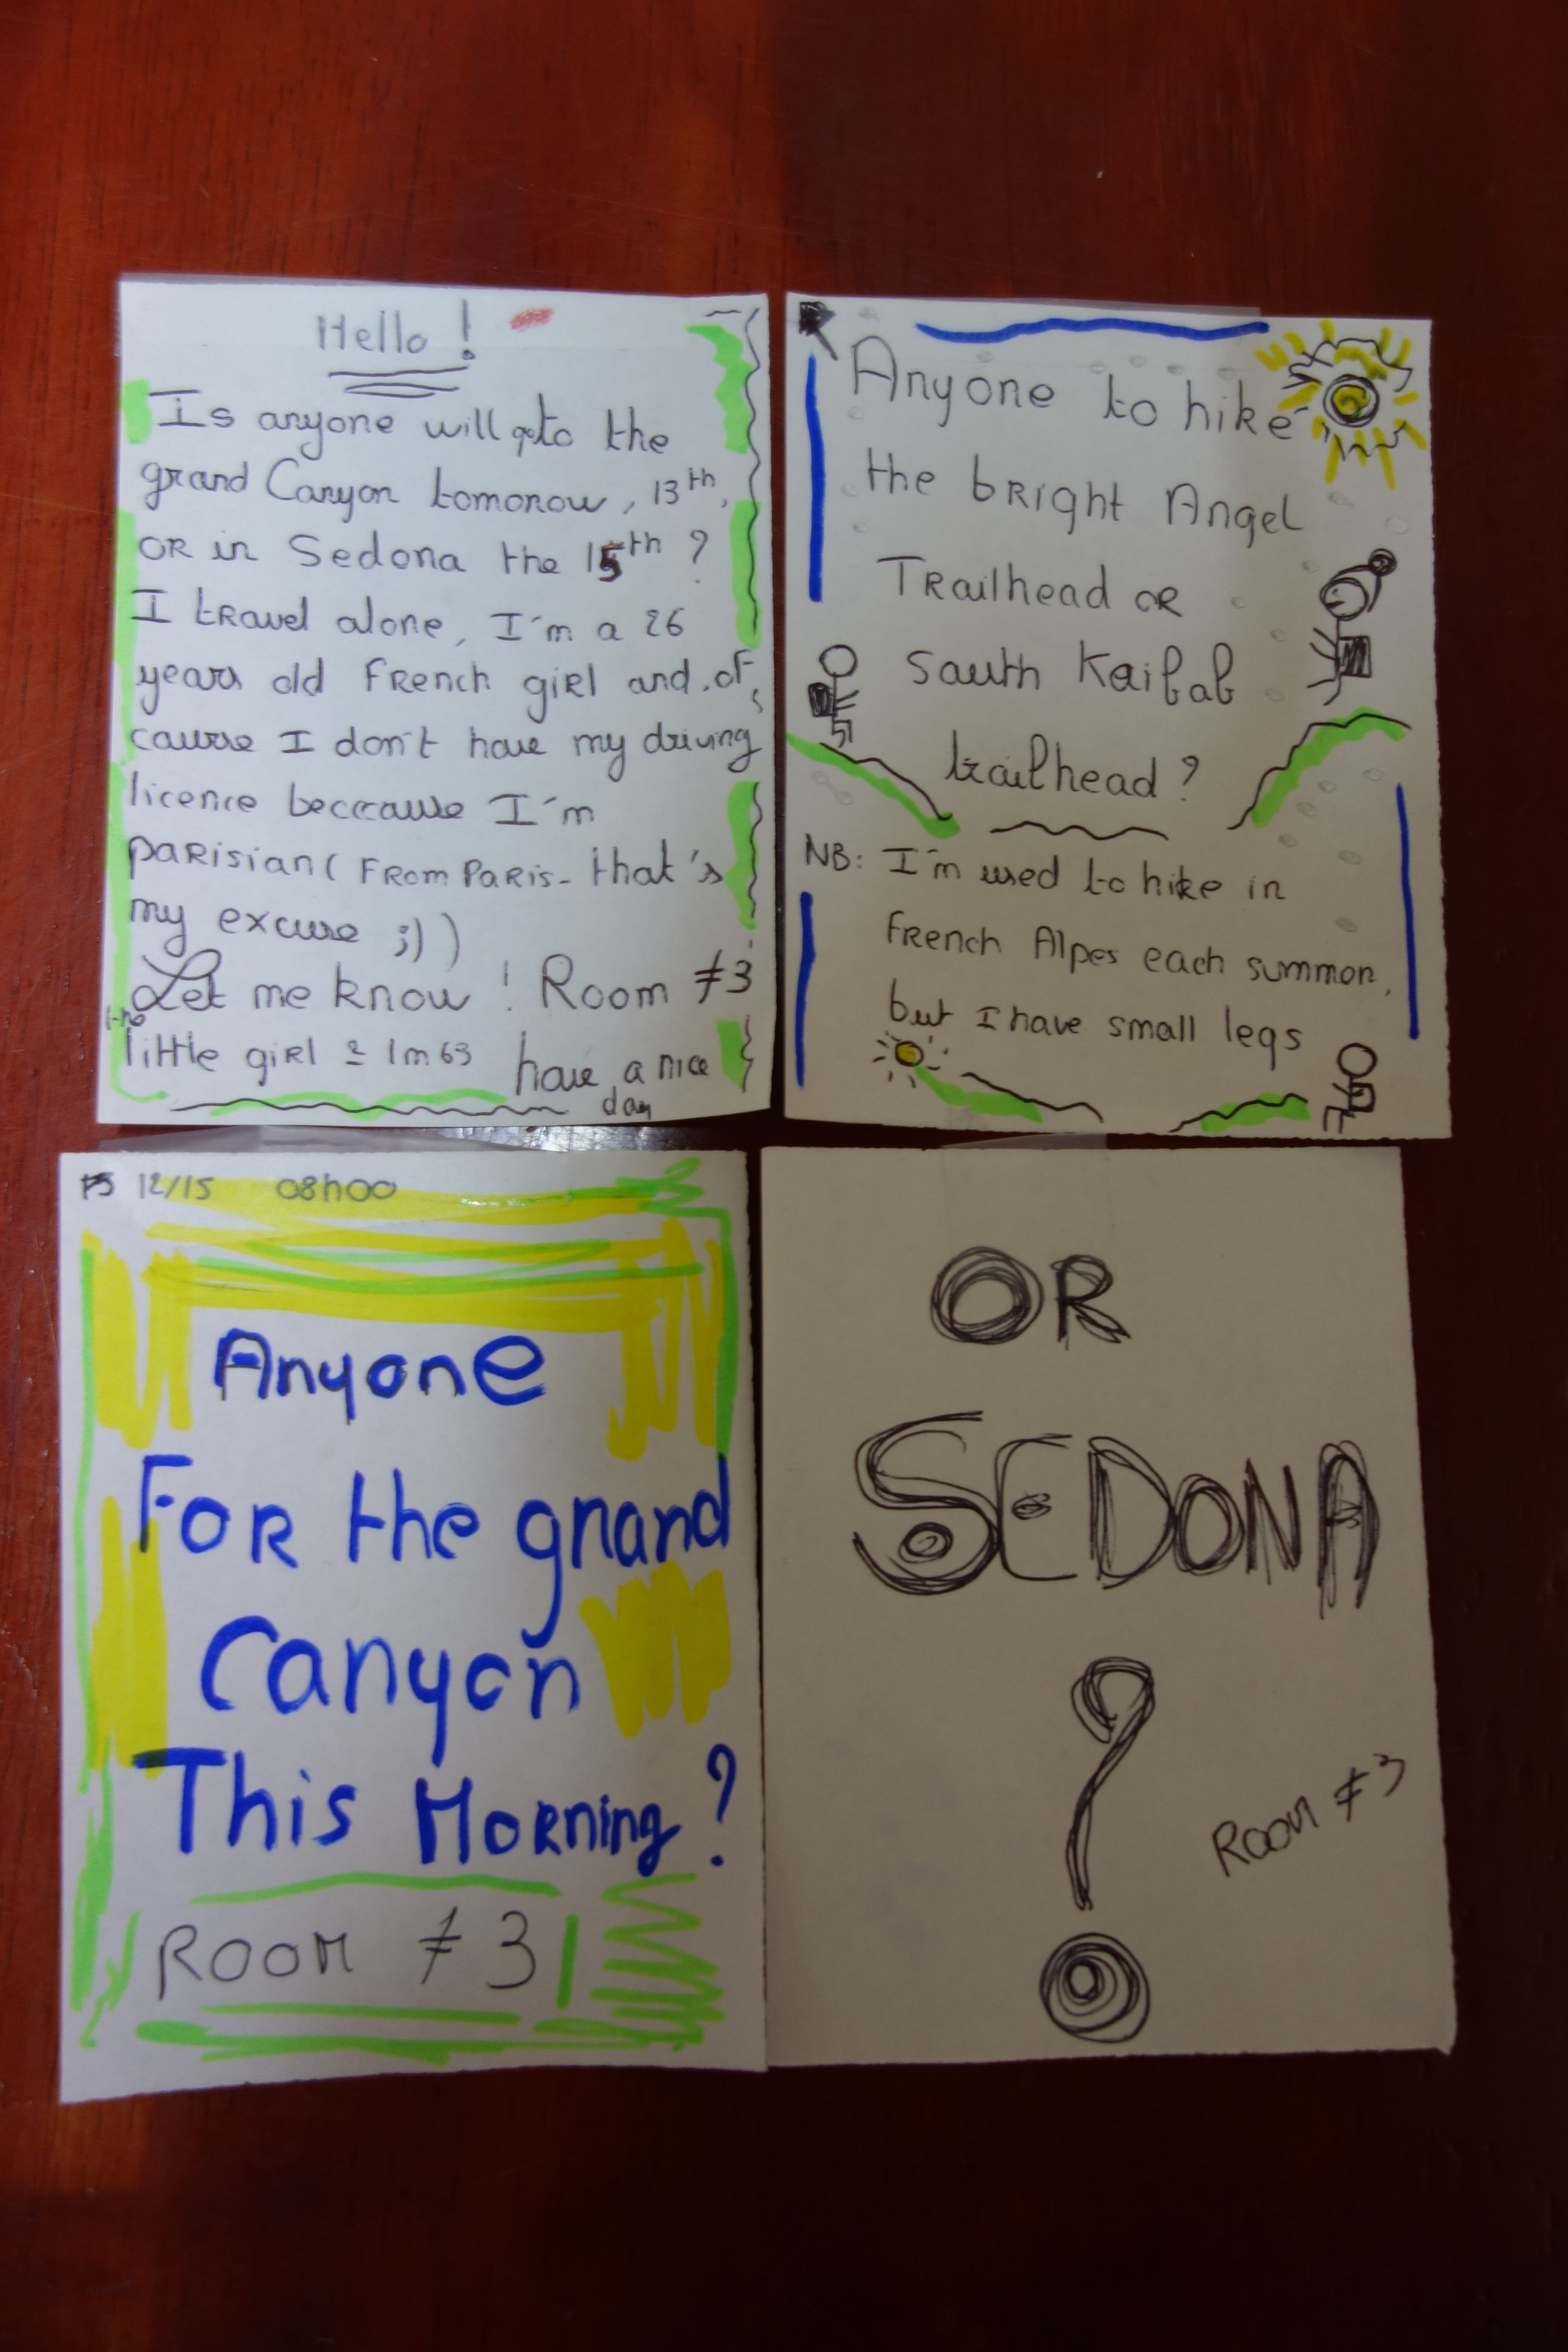 Hello !
Is anyone will goto the
grand Canyon tomorow, 13th,
OR in Sedona the 15th ?
I travel alone, I'm a 26
years old French girl and of
course I don't have my driving
licence beccause I'm
parisian ( From Paris - that's
my excuse ;) )
Let me know ! Room ≠ 3
little girl = 1m63 have a nice
day
Anyone to hike
the bright Angel
Trailhead OR
South Kaibab
trailhead ?
NB: I'm used to hike in
French Alpes each summon,
but I have small legs
12/15 08h00
Anyone
For the grand
Canyon
This Morning ?
Room ≠ 3
OR
SEDONA
?
Room ≠ 3